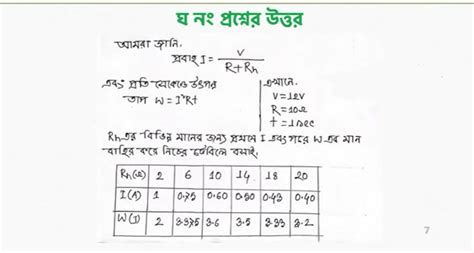 ঘ নং প্রশ্নের উত্তর
আমরা জানি,
প্রবাহ I = V / R+Rh
এবং প্রতি সেকেন্ডে উৎপন্ন
তাপ W = I²Rt
এখানে,
V = 12V
R = 10Ω
t = 1 sec
Rh এর বিভিন্ন মানের জন্য প্রথমে I এবং পরে W এর মান
বাহির করে নিচের টেবিলে বসাই.
Rh(Ω) 2 6 10 14 18 20
I(A) 1 0.75 0.60 0.50 0.43 0.40
W(J) 2 3.375 3.6 3.5 3.33 3.2
7